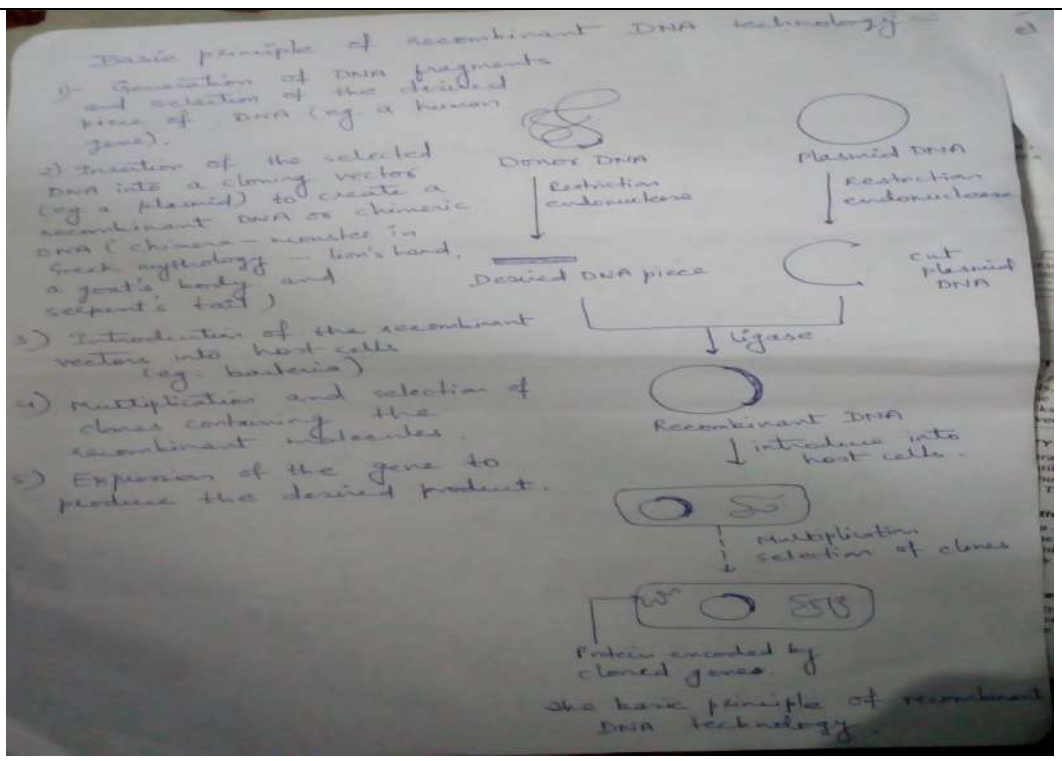 Basic principle of recombinant DNA technology -
1)- Generation of DNA fragments
and selection of the desired
piece of DNA (eg. a human
gene).
2) Insertion of the selected
DNA into a cloning vector
(eg a plasmid) to create a
recombinant DNA or chimeric
DNA (chimera - monster in
Greek mythology - lion's head,
a goat's body and
serpent's tail)
3) Introduction of the recombinant
vectors into host cells
(eg. bacteria)
4) Multiplication and selection of
clones containing the
recombinant molecules.
5) Expression of the gene to
produce the desired product.
Donor DNA
Restriction
endonuclease
Desired DNA piece
Plasmid DNA
Restriction
endonuclease
cut
plasmid
DNA
Ligase
Recombinant DNA
introduce into
host cells.
Multiplication
selection of clones
Protein encoded by
cloned genes
The basic principle of recombinant
DNA technology.